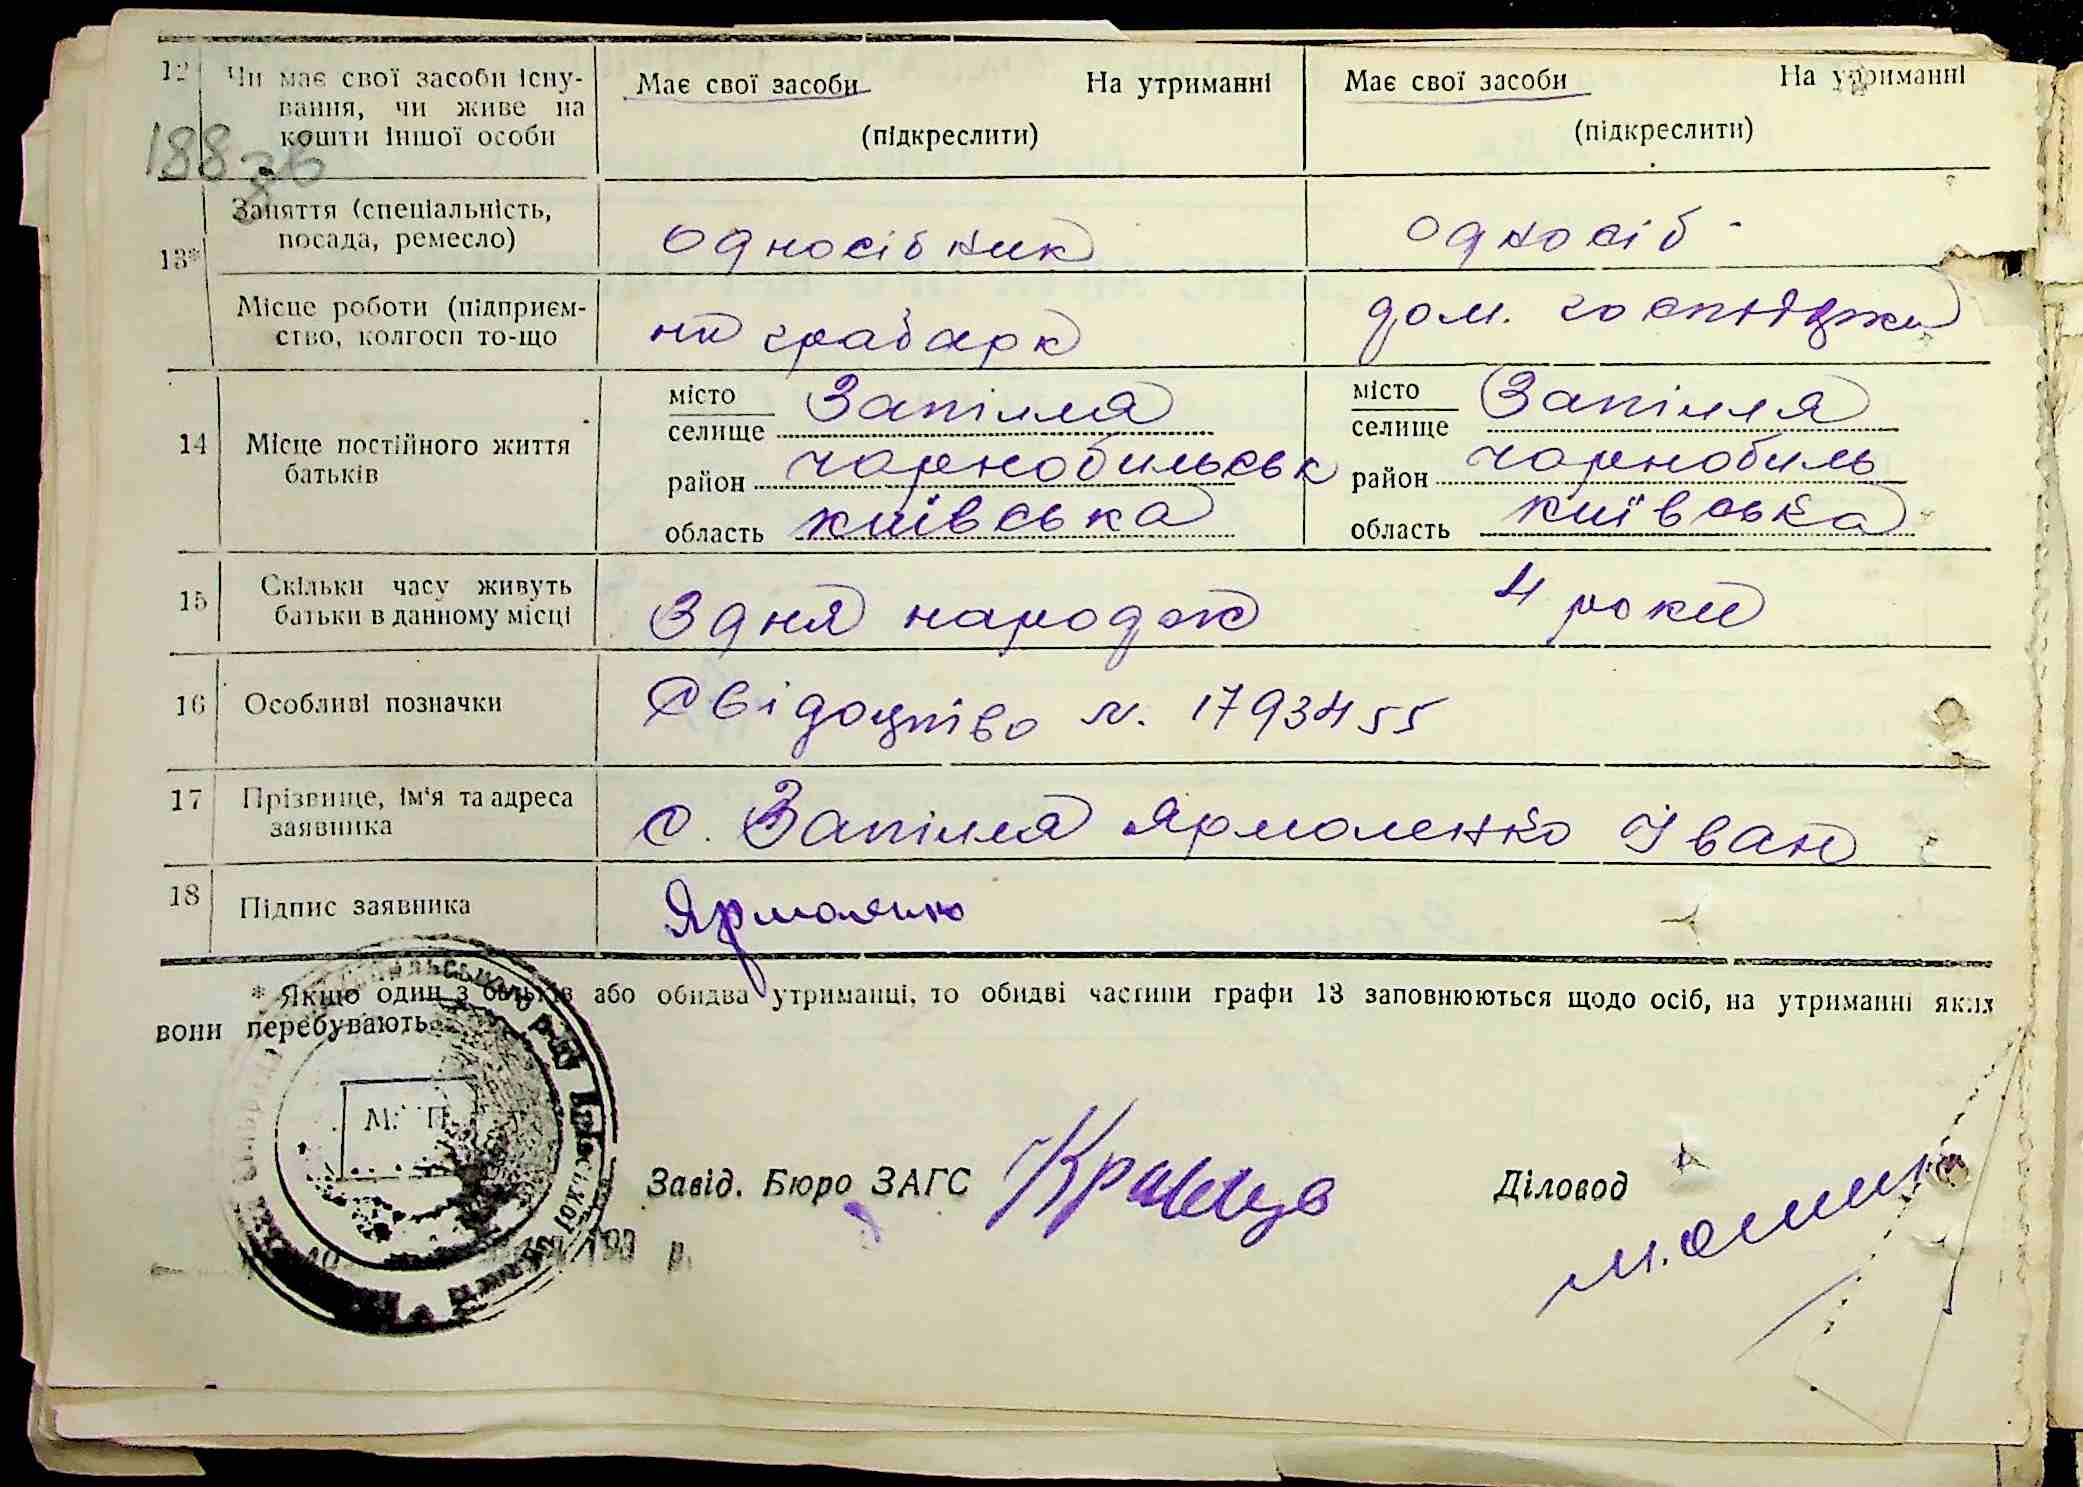 12 Чи має свої засоби існу-
вання, чи живе на
кошти іншої особи
Має свої засоби На утриманні
(підкреслити)
Має свої засоби На утриманні
(підкреслити)
188 зв
13*
Заняття (спеціальність,
посада, ремесло)
односібник
односіб -
Місце роботи (підприєм-
ство, колгосп то-що
на грабарк
дом. господжи
14 Місце постійного життя
батьків
місто
селище Запілля
район чорнобильськ
область київська
місто
селище Запілля
район чорнобиль
область київська
15 Скільки часу живуть
батьки в данному місці
З дня народж 4 роки
16 Особливі позначки
Свідоцтво N. 1793455
17 Прізвище, ім'я та адреса
заявника
с. Запілля Ярмоленко Іван
18 Підпис заявника
Ярмоленко
* Якщо один з батьків або обидва утриманці, то обидві частини графи 13 заповнюються щодо осіб, на утриманні яких
вони перебувають.
М. П.
Завід. Бюро ЗАГС Кравець
Діловод
193 р.